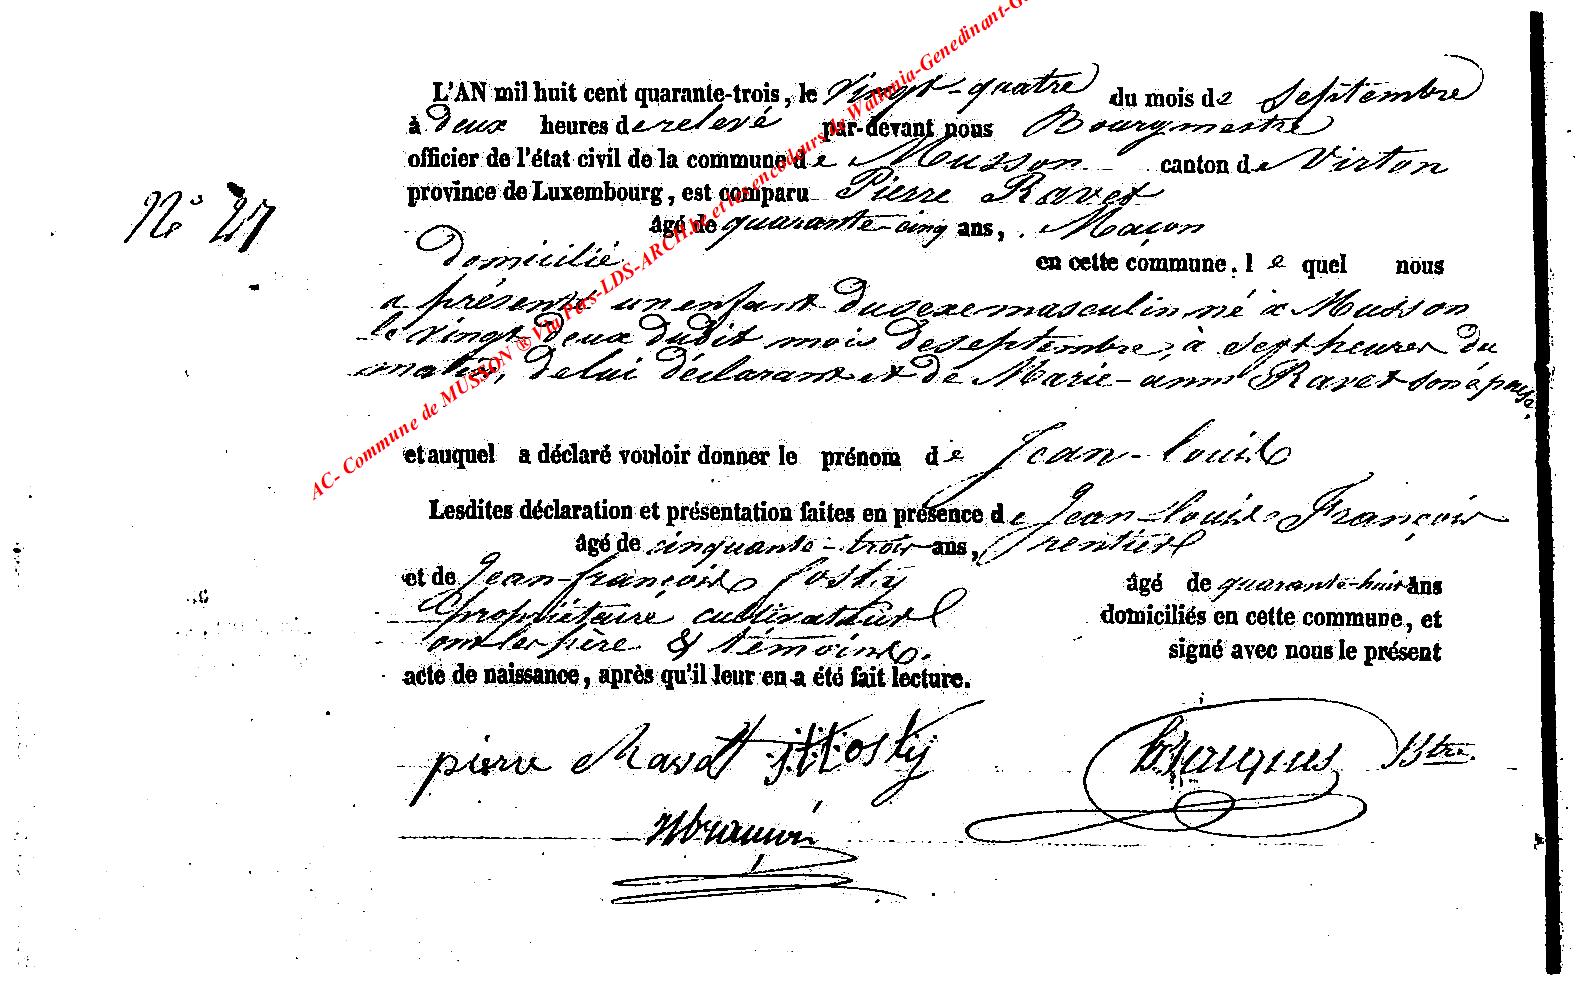 L'AN mil huit cent quarante-trois, le vingt-quatre du mois de septembre
à deux heures de relevé par-devant nous Bourgmestre
officier de l'état civil de la commune de Musson canton de Virton
province de Luxembourg, est comparu Pierre Ravet
N° 27
âgé de quarante-cinq ans, Maçon
domicilié en cette commune, le quel nous
a présenté un enfant du sexe masculin né à Musson
le vingt-deux dudit mois de septembre, à sept heures du
matin, de lui déclarant et de Marie-anne Ravet son épouse.
et auquel a déclaré vouloir donner le prénom de Jean-louis
Lesdites déclaration et présentation faites en présence de Jean-louis François
âgé de cinquante-trois ans, rentier
et de Jean-françois hosty âgé de quarante-huit ans
propriétaire cultivateur domiciliés en cette commune, et
ont les père & témoins. signé avec nous le présent
acte de naissance, après qu'il leur en a été fait lecture.
pierre Ravet jf Hosty Jacques Bstre
françois
AC- Commune de MUSSON ® Via Pits-LDS-ARCH.be et les encodeurs de Wallonia-Genedinant-G